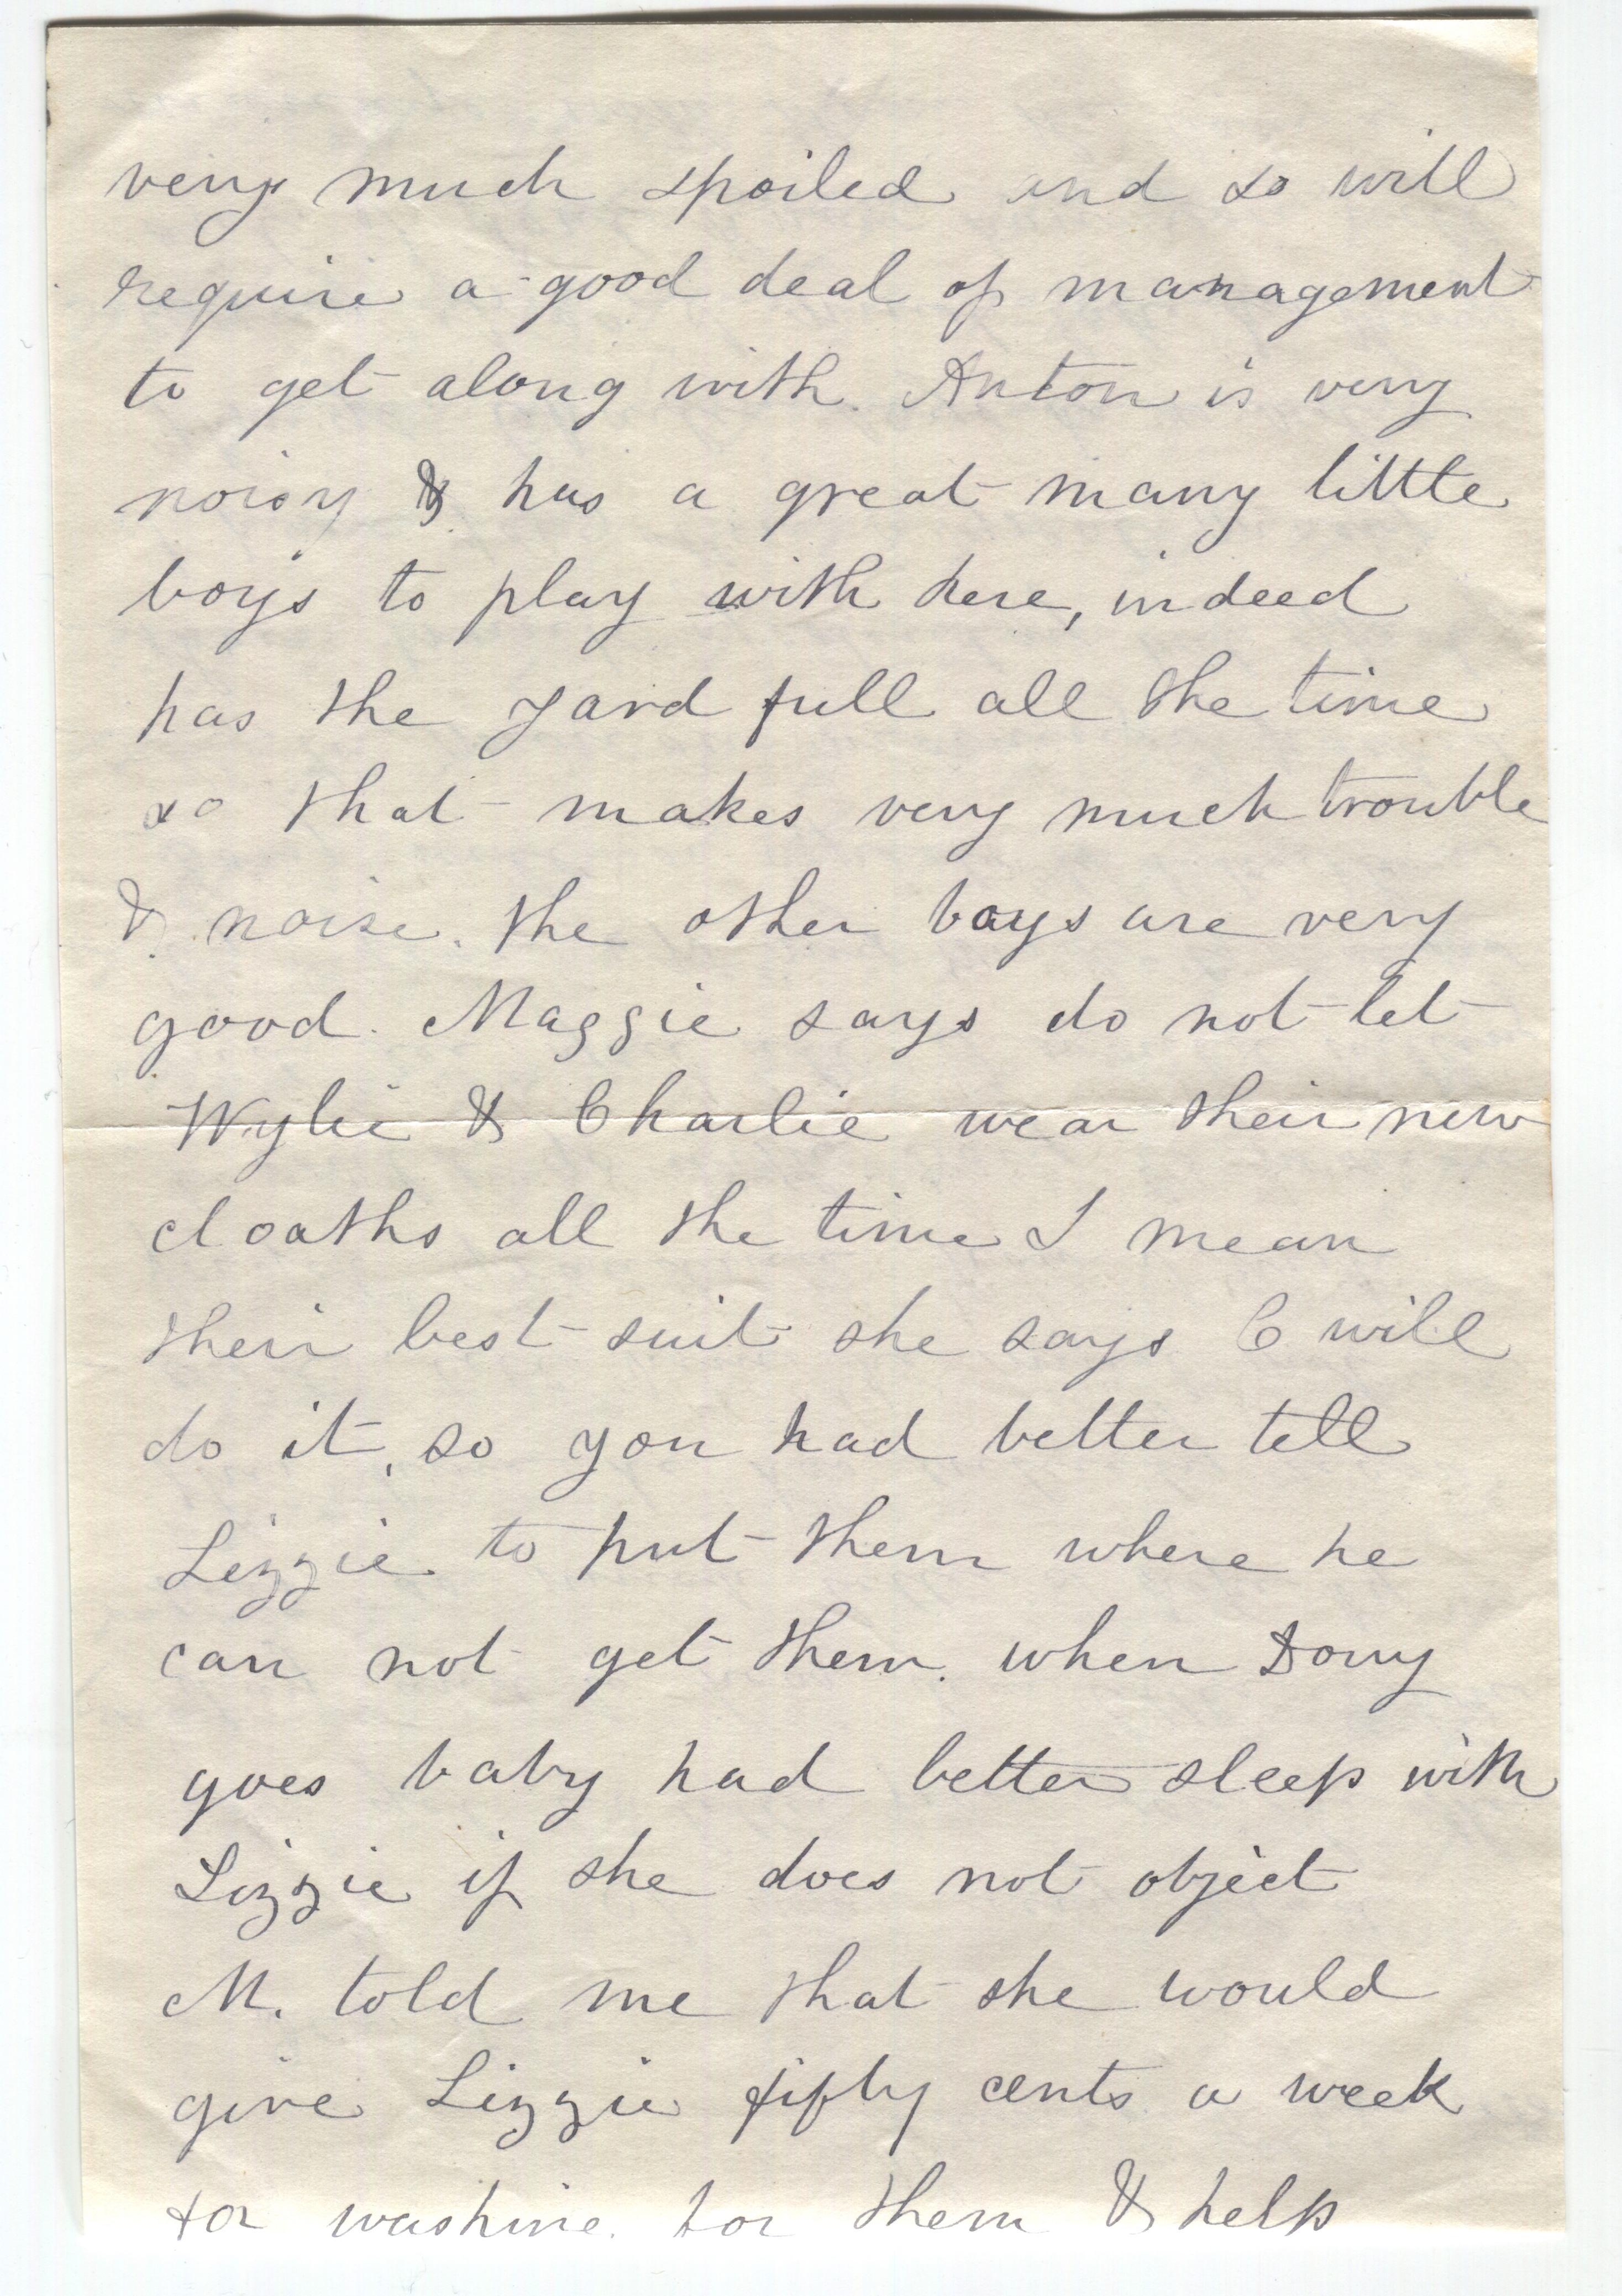 very much spoiled and so will
require a good deal of management
to get along with. Anton is very
noisy & has a great many little
boys to play with here, indeed
has the yard full all the time
so that makes very much trouble
& noise. the other boys are very
good. Maggie says do not let
Wylie & Charlie wear their new
cloaths all the time I mean
their best suit she says C will
do it, so you had better tell
Lizzie to put them where he
can not get them. when Dony
goes baby had better sleep with
Lizzie if she does not object
M. told me that she would
give Lizzie fifty cents a week
for washing for them & help